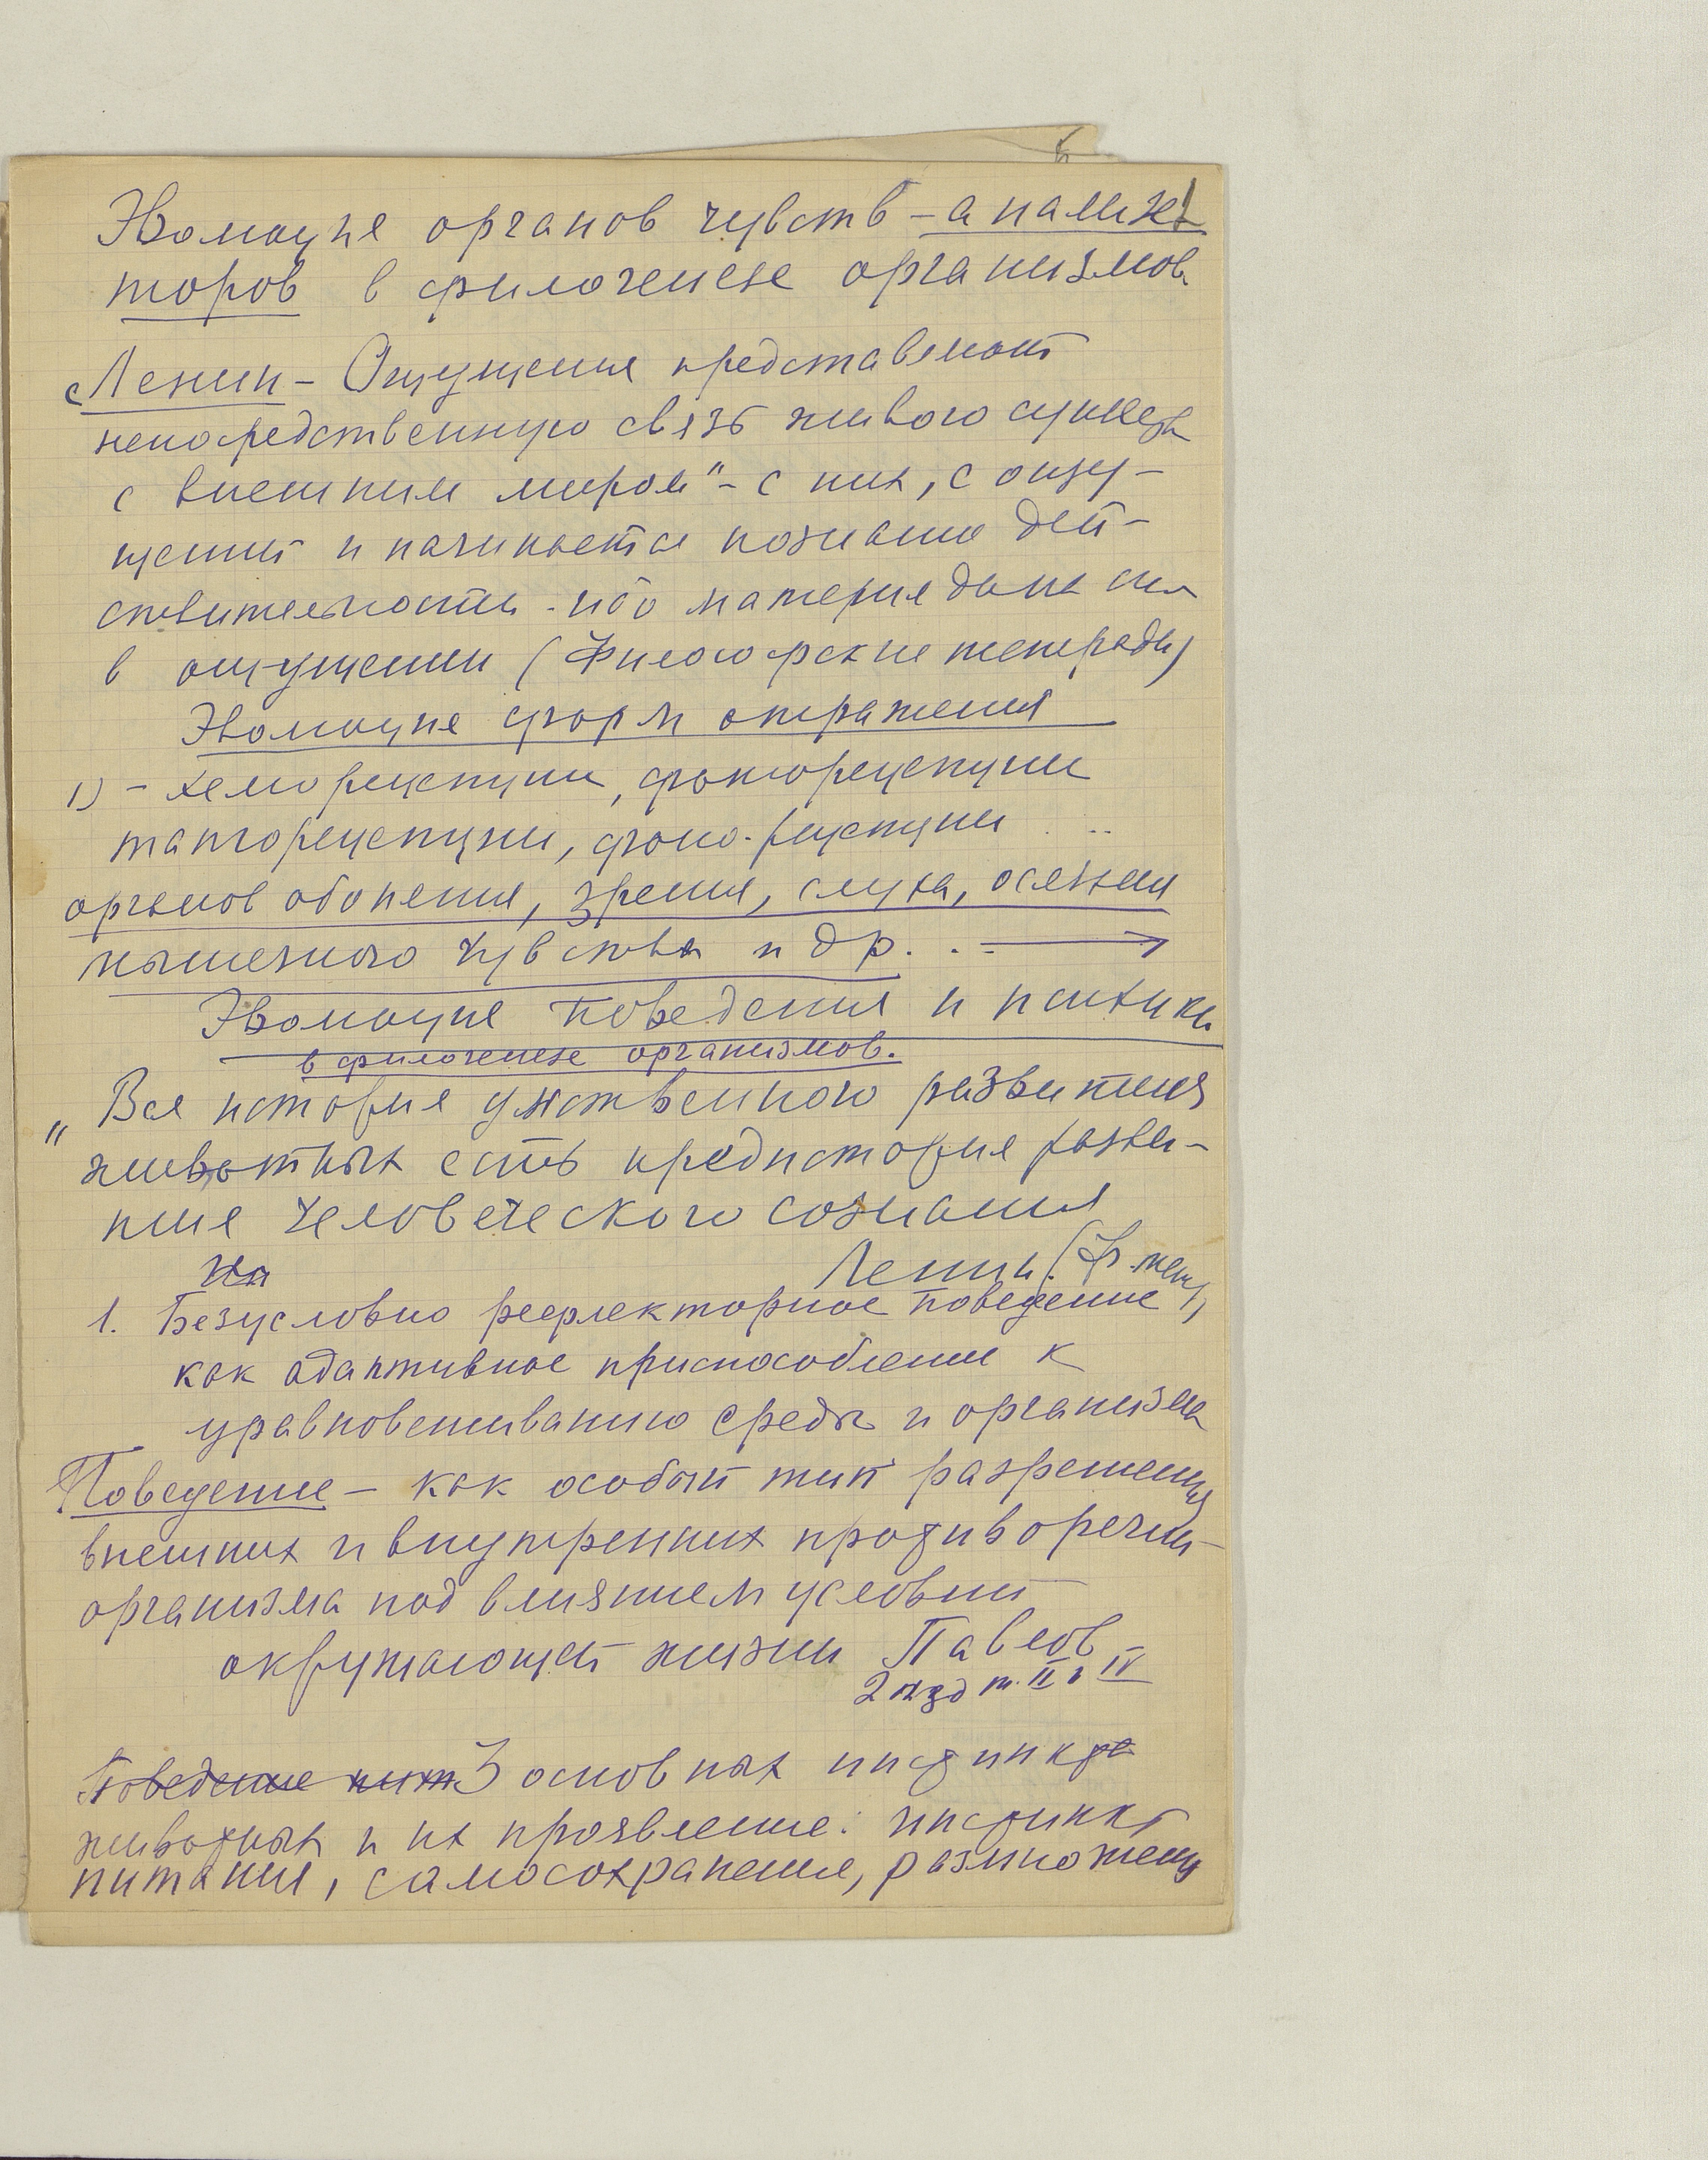 Эволюция органов чувств – анализа-
торов в филогенезе организмов
„Ленин – Ощущения представляют
непосредственную связь живого существа
с внешним миром" – с них, с ощу-
щений и начинается познание дей-
ствительности. ибо материя дана
в ощущении (Философские тетради)
Эволюция форм отражения
1) – хеморецепции, фоторецепции
тангорецепции, фоно-рецепции . ..
органов обоняния, зрения, слуха, осязания
мышечного чувства и др. . =
Эволюция поведения и психики
в филогенезе организмов.
„ Вся история умственного развития
животных есть предистория разви-
тия человеческого сознания
Ленин. (Ф. тет)
1. Безусловно рефлекторное поведение
как адаптивное приспособление к
уравновешиванию среды и организма
Поведение – как особый тип разрешения
внешних и внутренних противоречий
организма под влиянием условий
окружающей жизни Павлов
2 изд т. II и IV
Поведение 3 основных инстинкта
животных и их проявление: инстинкт
питания, самосохранения, размножения